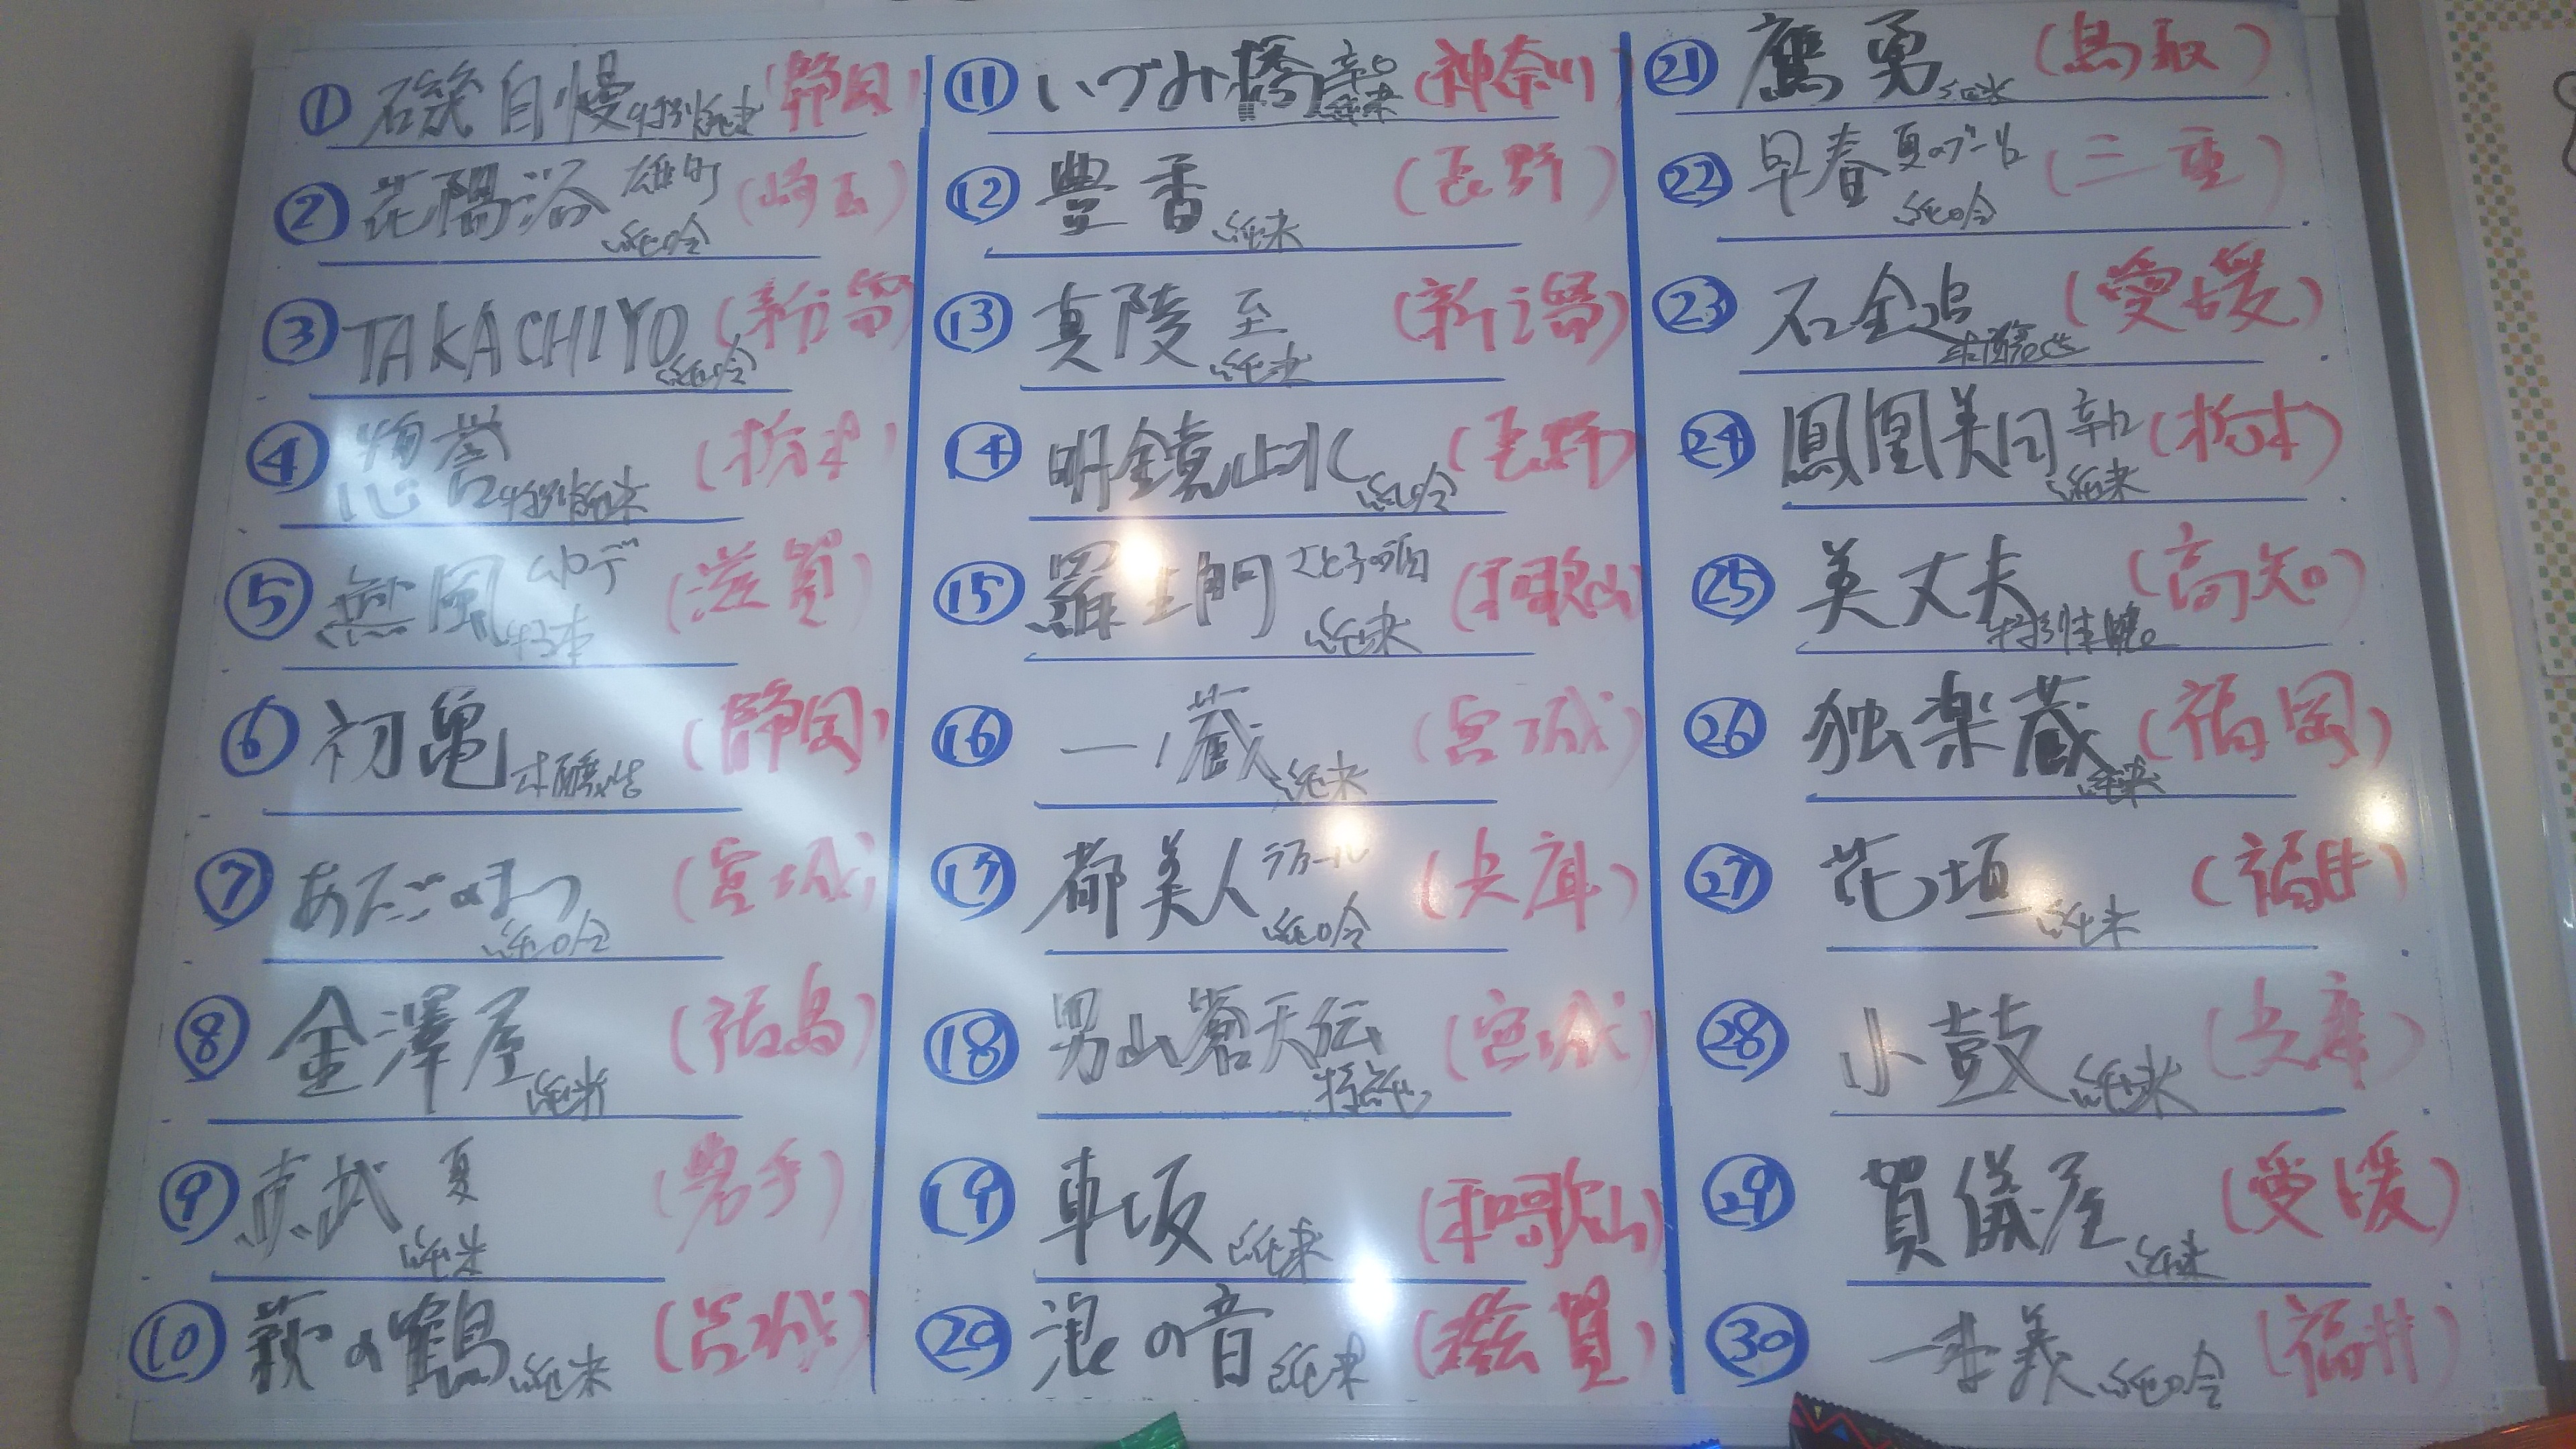 ① 磯自慢 特別純米 (静岡)
② 花陽浴 雄町 純吟 (埼玉)
③ TAKACHIYO 純吟 (新潟)
④ 惣誉 特別純米 (栃木)
⑤ 無風 (滋賀)
⑥ 初亀 本醸造 (静岡)
⑦ あたごのまつ 純吟 (宮城)
⑧ 金澤屋 純米 (福島)
⑨ 夏 純米 (岩手)
⑩ 萩の鶴 純米 (宮城)
⑪ いづみ橋 辛口 純米 (神奈川)
⑫ 豊香 純米 (長野)
⑬ 真陵 至 純米 (新潟)
⑭ 明鏡止水 純吟 (長野)
⑮ 羅生門 さと子の酒 純米 (和歌山)
⑯ 一ノ蔵 純米 (宮城)
⑰ 都美人 純吟 (兵庫)
⑱ 男山蒼天伝 特純 (宮城)
⑲ 車坂 純米 (和歌山)
⑳ 浪の音 純米 (滋賀)
㉑ 鷹勇 純米 (鳥取)
㉒ 早春 純吟 (三重)
㉓ 石鎚 本醸造 (愛媛)
㉔ 鳳凰美田 辛口 純米 (栃木)
㉕ 美丈夫 (高知)
㉖ 独楽蔵 純米 (福岡)
㉗ 花垣 純米 (福井)
㉘ 小鼓 純米 (兵庫)
㉙ 賀儀屋 純米 (愛媛)
㉚ 一本義 純吟 (福井)